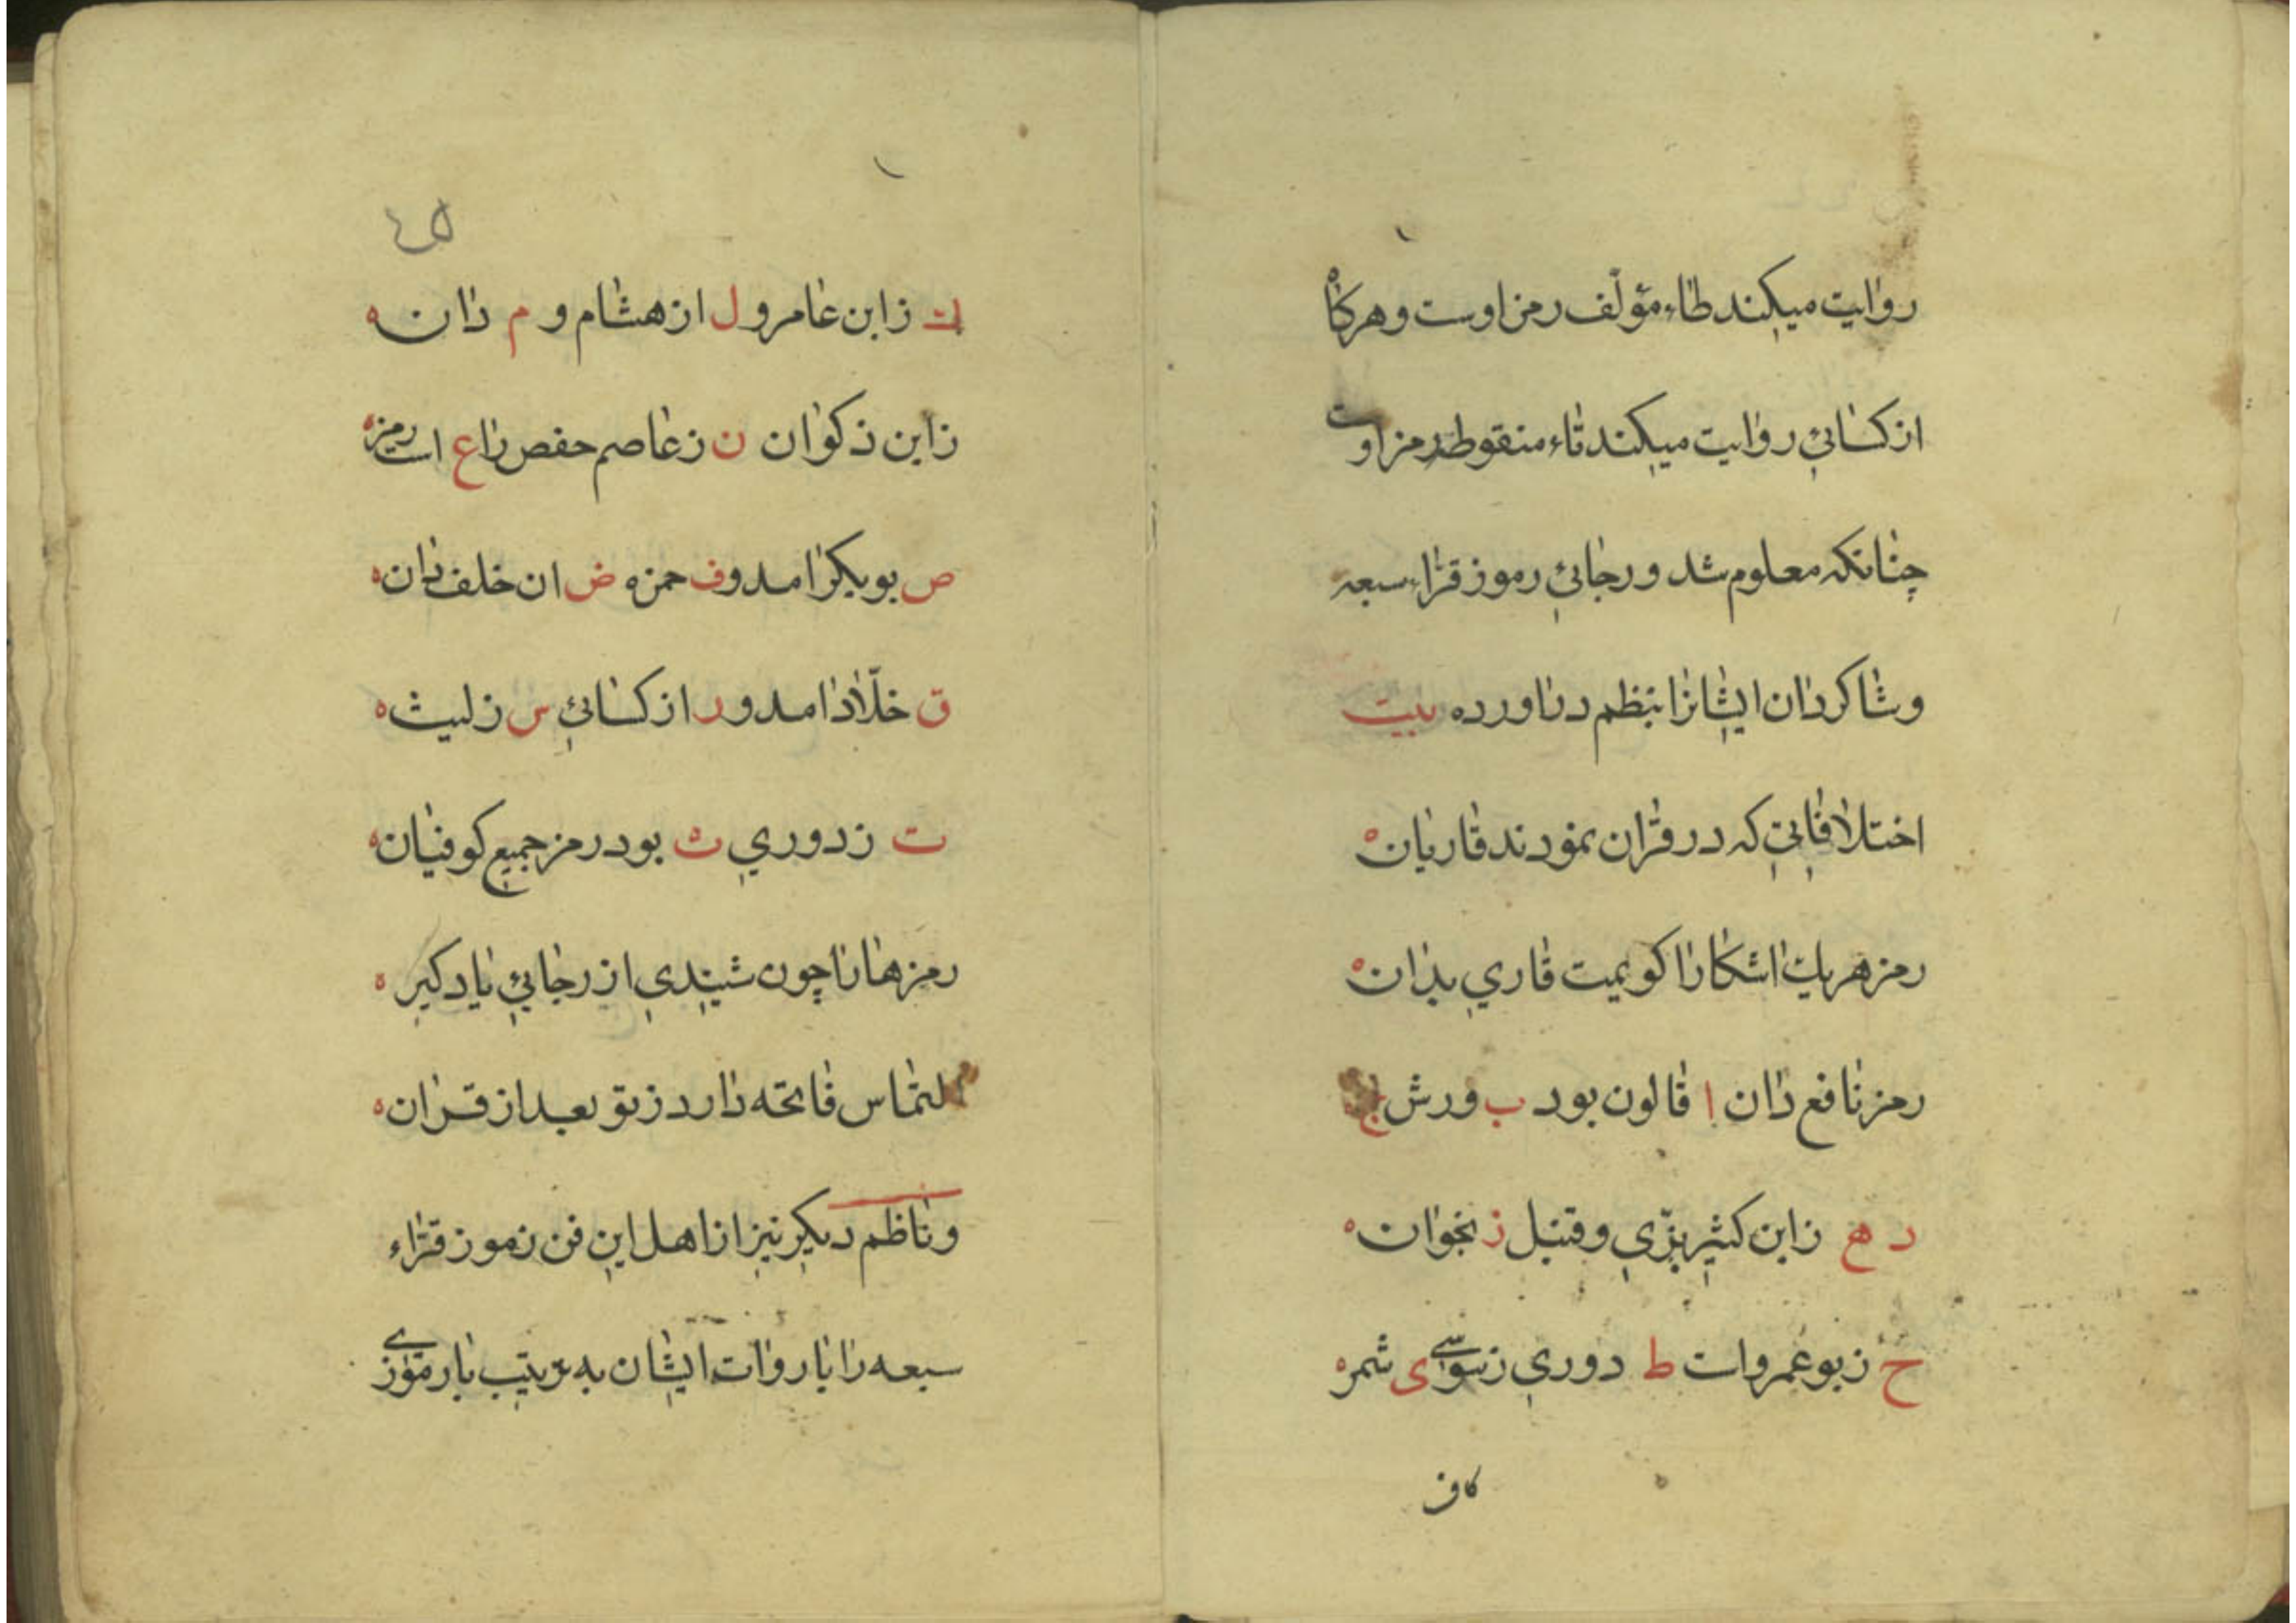 روایت میکند طاء مؤلّف رمز اوست و هرکاه
از کسائی روایت میکند تاء منقوطه رمز اوست
چنانکه معلوم شد و رجائی رموز قرّاء سبعه
و شاکردان ایشانرا بنظم دراورده بیت
اختلافاتی که در قران نمودند قاریان ه
رمز هر یك اشکارا کویمیت قاری بدان ه
رمز نافع دان ا قالون بود ب ورش ج
د ه ز ابن کثیر بزّی و قنبل ز بخوان ه
ح ز بو عمرو است ط دوری ز سواسی ی شمر ه
کاف
ك ز ابن عامر و ل از هشام و م دان ه
ز ابن ذکوان ن ز عاصم حفص را ع است رمز ه
ص بوبکر امد و ف حمزه ض ان خلف دان ه
ق خلّاد امد و ر از کسائی س ز لیث ه
ت ز دوری ث بود رمز جمیع کوفیان ه
رمزها را چون شنیدی از رجائی یاد کیر ه
التماس فاتحه دارد ز تو بعد از قران ه
و ناظم دیکر نیز از اهل این فن رموز قرّاء
سبعه را با روات ایشان به ترتیب با رموزی